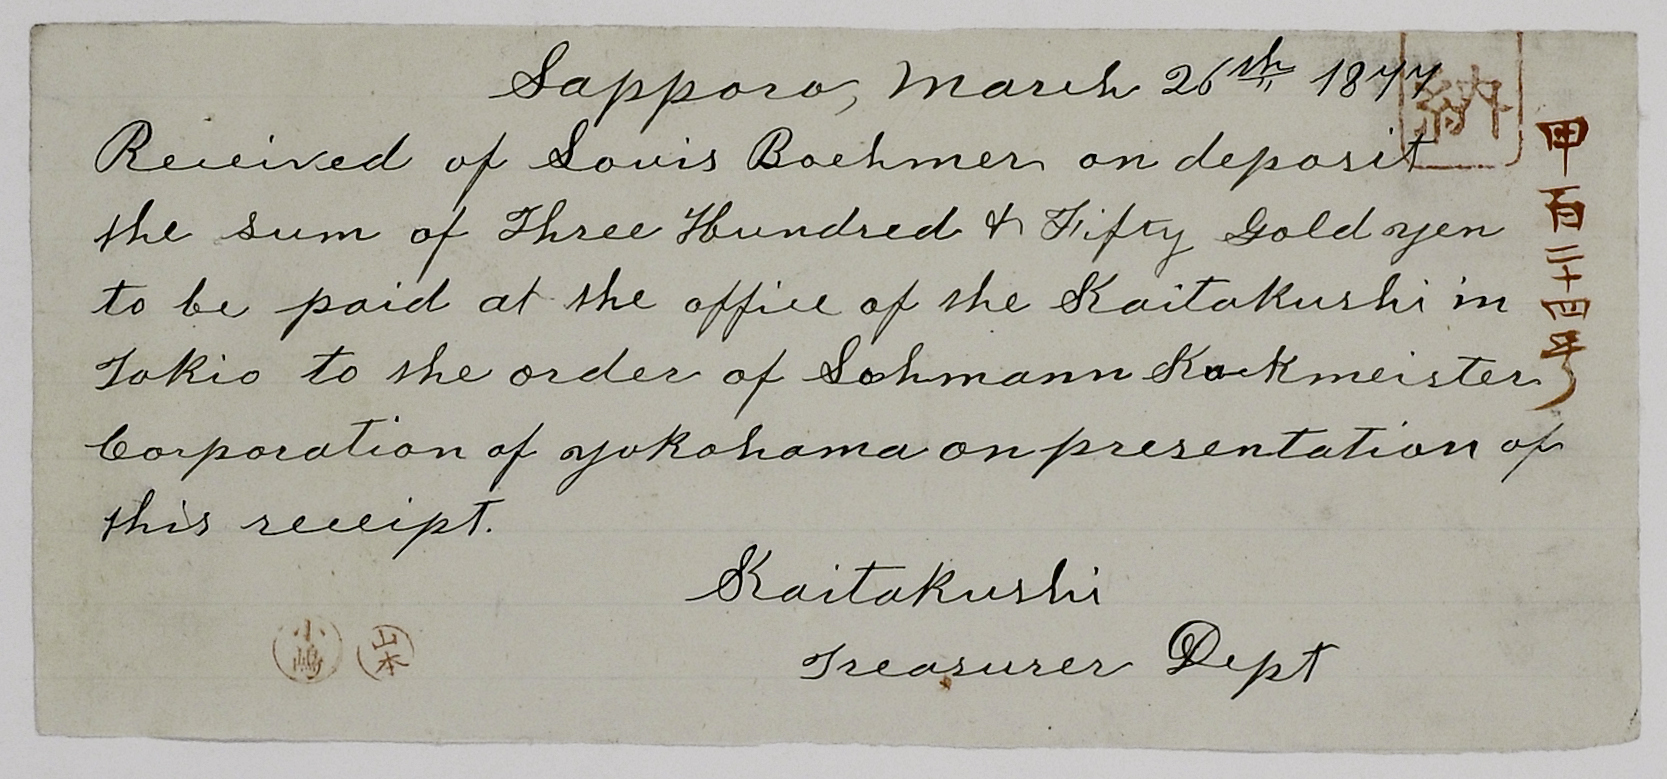 Sapporo, March 26th 1877
Received of Louis Boehmer on deposit
the sum of Three Hundred & Fifty Gold yen
to be paid at the office of the Kaitakushi in
Tokio to the order of Sohmann Kuckmeister
Corporation of Yokohama on presentation of
this receipt.
Kaitakushi
Treasurer Dept
納
甲百二十四号
小嶋
山本